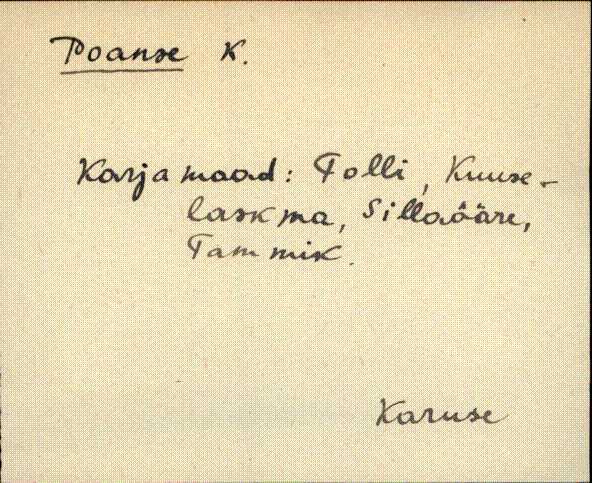 Poanse K.
Karjamaad: Tolli, Kuuse-
laskma, Sillaääre,
Tammik.
Karuse